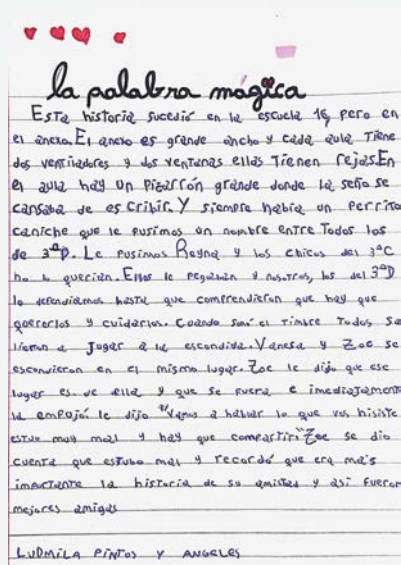 la palabra mágica
Esta historia sucedió en la escuela 16, pero en
el anexo. El anexo es grande ancho y cada aula tiene
dos ventiladores y dos ventanas ellas tienen rejas. En
el aula hay un pizarrón grande donde la seño se
cansaba de escribir. Y siempre había un perrito
caniche que le pusimos un nombre entre todos los
de 3ºD. Le pusimos Reyna y los chicos del 3ºC
no lo querían. Ellos le pegaban y nosotros, los del 3ºD
lo defendíamos hasta que comprendieron que hay que
quererlos y cuidarlos. Cuando sonó el timbre todos sa
lieron a jugar a la escondida. Vanesa y Zoe se
escondieron en el mismo lugar. Zoe le dijo que ese
lugar es de ella y que se fuera e imediatamente
la empujó. le dijo "Vamos a hablar lo que vos hisiste
estuvo muy mal y hay que compartir" Zoe se dio
cuenta que estubo mal y recordó que era más
importante la historia de su amistad y asi fueron
mejores amigas
LUDMILA PINTOS Y ANGELES